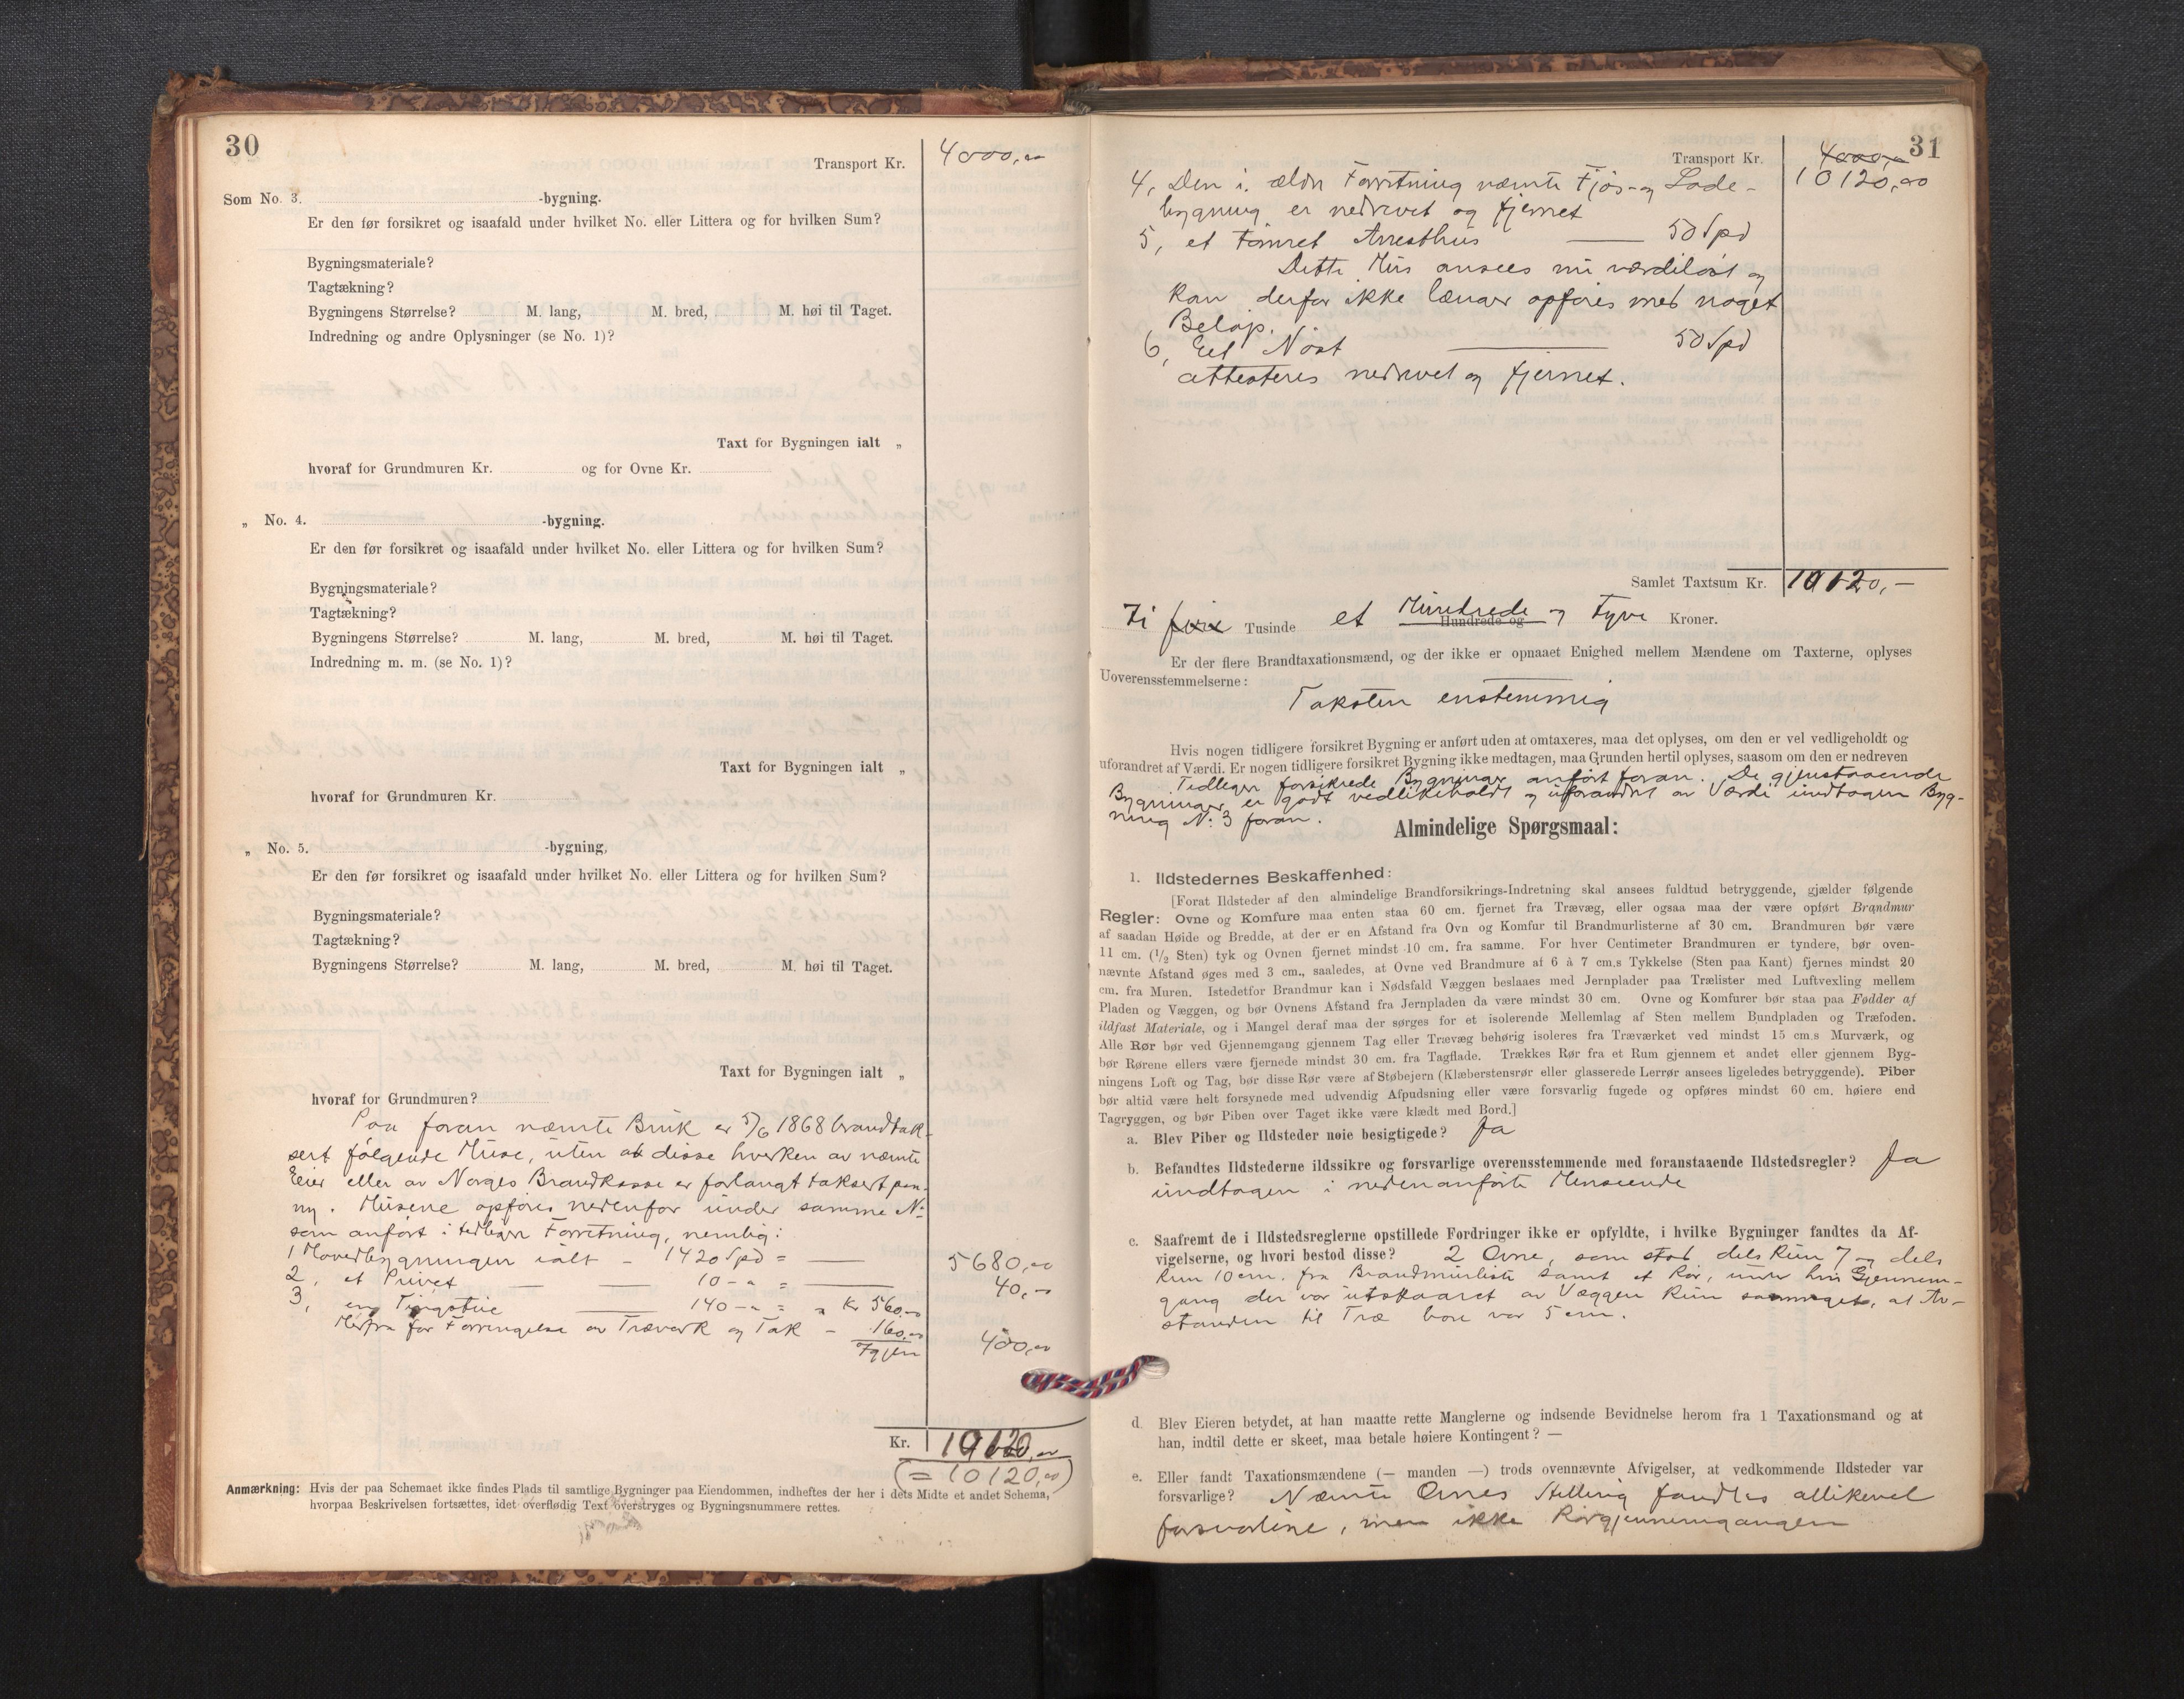 30
Transport Kr. 4000,00
Som No. 3. -bygning.
Er den før forsikret og isaafald under hvilket No. eller Littera og for hvilken Sum?
Bygningsmateriale?
Tagtækning?
Bygningens Størrelse? M. lang, M. bred, M. høi til Taget.
Indredning og andre Oplysninger (se No. 1)?
Taxt for Bygningen ialt „
hvoraf for Grundmuren Kr. og for Ovne Kr.
„ No. 4. -bygning.
Er den før forsikret og isaafald under hvilket No. eller Littera og for hvilken Sum?
Bygningsmateriale?
Tagtækning?
Bygningens Størrelse? M. lang, M. bred, M. høi til Taget.
Indredning m. m. (se No. 1)?
Taxt for Bygningen ialt „
hvoraf for Grundmuren Kr.
„ No. 5. -bygning,
Er den før forsikret og isaafald under hvilket No. eller Littera og for hvilken Sum?
Bygningsmateriale?
Tagtækning?
Bygningens Størrelse? M. lang, M. bred, M. høi til Taget.
Taxt for Bygningen ialt „
hvoraf for Grundmuren?
Paa foran nævnte Bruk er 5/6 1868 brandtak-
sert følgende Huse, uten at disse hverken av nævnte
Eier eller av Norges Brandkasse er forlangt taksert paa
ny. Husene opføres nedenfor under samme No
som anført i tidligere Forretning, nemlig:
1 Hovedbygningen ialt - 1420 Spd = 5680,00
2, et Privet 10 - " = 40,00
3, en Tingstue 140 - " = " Kr 560,00
Herfra for Forringelse av Træverk og Tak - 160,00
Igjen 400,00
Kr. 10120,00
(= 10120,00)
Anmærkning: Hvis der paa Schemaet ikke findes Plads til samtlige Bygninger paa Eiendommen, indheftes der her i dets Midte et andet Schema,
hvorpaa Beskrivelsen fortsættes, idet overflødig Text overstryges og Bygningsnummere rettes.
31
Transport Kr. 4000,00
10120,00
4, Den i ældre Forretning nævnte Fjøs- og Lade-
bygning er nedrevet og fjernet
5, et tømret Arresthus 50 Spd
Dette Hus ansees nu værdiløst og
kan derfor ikke længer opføres med noget
Beløp.
6, Eet Nøst 50 Spd
attesteres nedrevet og fjernet.
Samlet Taxtsum Kr. 10120,-
Ti fire Tusinde et Hundrede Hundrede og og Tyve Kroner.
Er der flere Brandtaxationsmænd, og der ikke er opnaaet Enighed mellem Mændene om Taxterne, oplyses
Uoverensstemmelserne:
Taksten enstemmig
Hvis nogen tidligere forsikret Bygning er anført uden at omtaxeres, maa det oplyses, om den er vel vedligeholdt og
uforandret af Værdi. Er nogen tidligere forsikret Bygning ikke medtagen, maa Grunden hertil oplyses, saasom om den er nedreven
Tidligere forsikrede Bygninger anført foran. De gjenstaaende
Bygninger er godt vedlikeholdt og uforandret av Værdi undtagen Byg-
ning No 3 foran.
Almindelige Spørgsmaal:
1. Ildstedernes Beskaffenhed:
[Forat Ildsteder af den almindelige Brandforsikrings-Indretning skal ansees fuldtud betryggende, gjælder følgende
Regler: Ovne og Komfure maa enten staa 60 cm. fjernet fra Trævæg, eller ogsaa maa der være opført Brandmur
af saadan Høide og Bredde, at der er en Afstand fra Ovn og Komfur til Brandmurlisterne af 30 cm. Brandmuren bør være
11 cm. (1/2 Sten) tyk og Ovnen fjernet mindst 10 cm. fra samme. For hver Centimeter Brandmuren er tyndere, bør oven-
nævnte Afstand øges med 3 cm., saaledes, at Ovne ved Brandmure af 6 à 7 cm.s Tykkelse (Sten paa Kant) fjernes mindst 20
cm. fra Muren. Istedetfor Brandmur kan i Nødsfald Væggen beslaaes med Jernplader paa Trælister med Luftvexling mellem
Pladen og Væggen, og bør Ovnens Afstand fra Jernpladen da være mindst 30 cm. Ovne og Komfurer bør staa paa Fødder af
ildfast Materiale, og i Mangel deraf maa der sørges for et isolerende Mellemlag af Sten mellem Bundpladen og Træfoden.
Alle Rør bør ved Gjennemgang gjennem Tag eller Trævæg behørig isoleres fra Træværket ved mindst 15 cm.s Murværk, og
bør Rørene ellers være fjernede mindst 30 cm. fra Tagflade. Trækkes Rør fra et Rum gjennem et andet eller gjennem Byg-
ningens Loft og Tag, bør disse Rør være af Støbejern (Klæberstensrør eller glasserede Lerrør ansees ligeledes betryggende). Piber
bør altid være helt forsynede med udvendig Afpudsning eller være forsvarlig fugede og opføres mindst 60 cm. høiere end
Tagryggen, og bør Piben over Taget ikke være klædt med Bord.]
a. Blev Piber og Ildsteder nøie besigtigede? Ja
b. Befandtes Ildstederne ildssikre og forsvarlige overensstemmende med foranstaaende Ildstedsregler? Ja
undtagen i nedenanførte Henseende
c. Saafremt de i Ildstedsreglerne opstillede Fordringer ikke er opfyldte, i hvilke Bygninger fandtes da Af-
vigelserne, og hvori bestod disse? 2 Ovne, som stod dels kun 7 og dels
kun 10 cm. fra Brandmurliste samt et Rør, under hvis Gjennem-
gang der var utskaaret av Væggen kun saameget, at Av-
standen til Træ bare var 5 cm.
d. Blev Eieren betydet, at han maatte rette Manglerne og indsende Bevidnelse herom fra 1 Taxationsmand og at
han, indtil dette er skeet, maa betale høiere Kontingent? —
e. Eller fandt Taxationsmændene (— manden —) trods ovennævnte Afvigelser, at vedkommende Ildsteder var
forsvarlige? Nævnte Ovnes Stilling fandtes allikevel
forsvarlige, men ikke Rørgjennemgangen